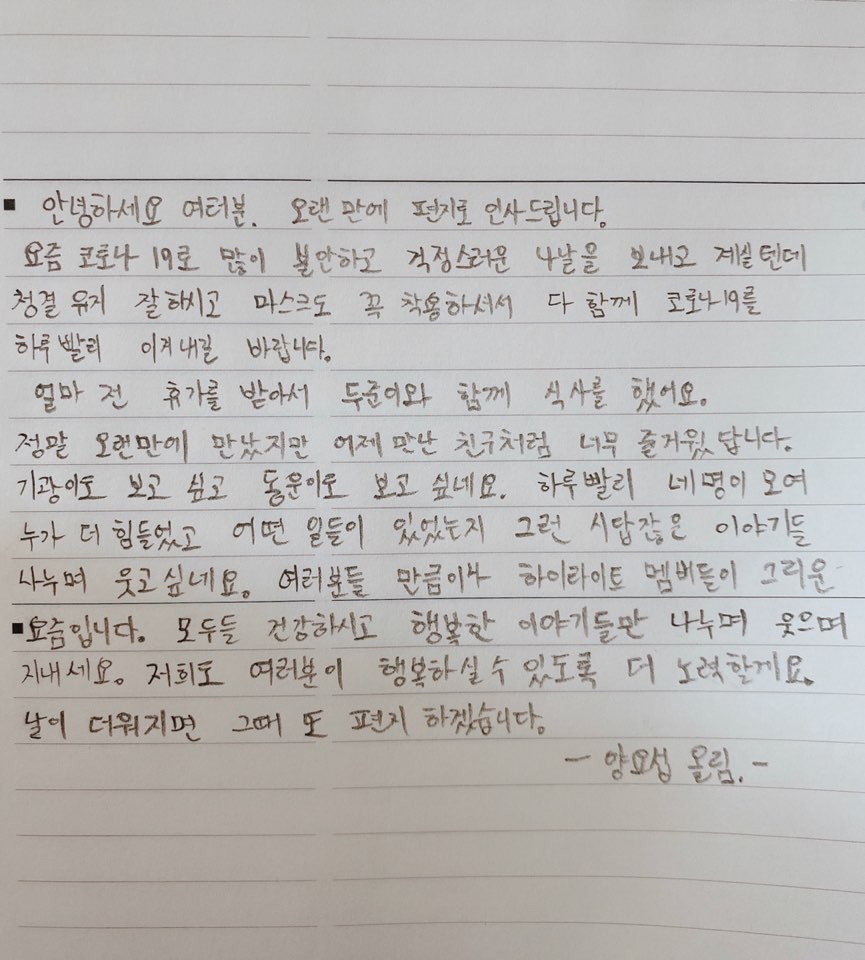 안녕하세요 여러분. 오랜 만에 편지로 인사드립니다.
요즘 코로나 19로 많이 불안하고 걱정스러운 나날을 보내고 계실텐데
청결 유지 잘 하시고 마스크도 꼭 착용하셔서 다 함께 코로나19를
하루 빨리 이겨내길 바랍니다.
얼마 전 휴가를 받아서 두준이와 함께 식사를 했어요.
정말 오랜만에 만났지만 어제 만난 친구처럼 너무 즐거웠답니다.
기광이도 보고 싶고 동운이도 보고 싶네요. 하루빨리 네명이 모여
누가 더 힘들었고 어떤 일들이 있었는지 그런 시답잖은 이야기들
나누며 웃고 싶네요. 여러분들 만큼이나 하이라이트 멤버들이 그리운
요즘입니다. 모두들 건강하시고 행복한 이야기들만 나누며 웃으며
지내세요. 저희도 여러분이 행복하실 수 있도록 더 노력할게요.
날이 더워지면 그때 또 편지 하겠습니다.
- 양요섭 올림. -